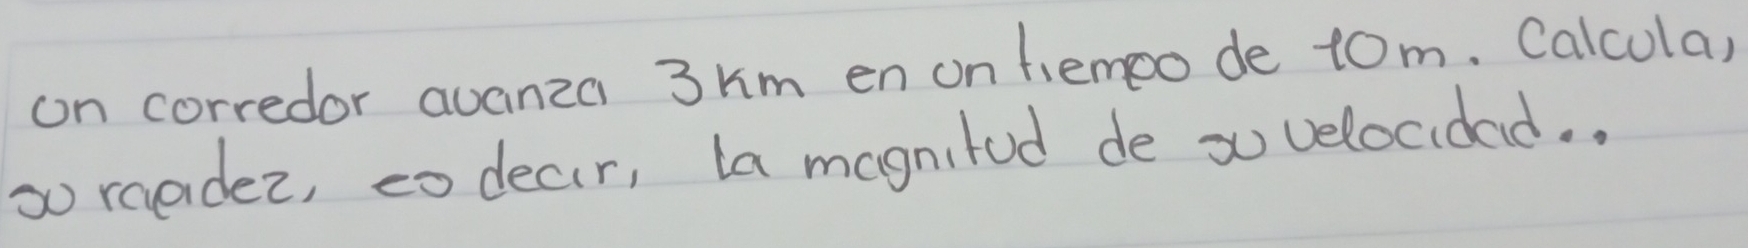 un corredor avanza 3 Km en un tiempo de 10m. Calcula,
su rapidez, es decir, la magnitud de su velocidad..